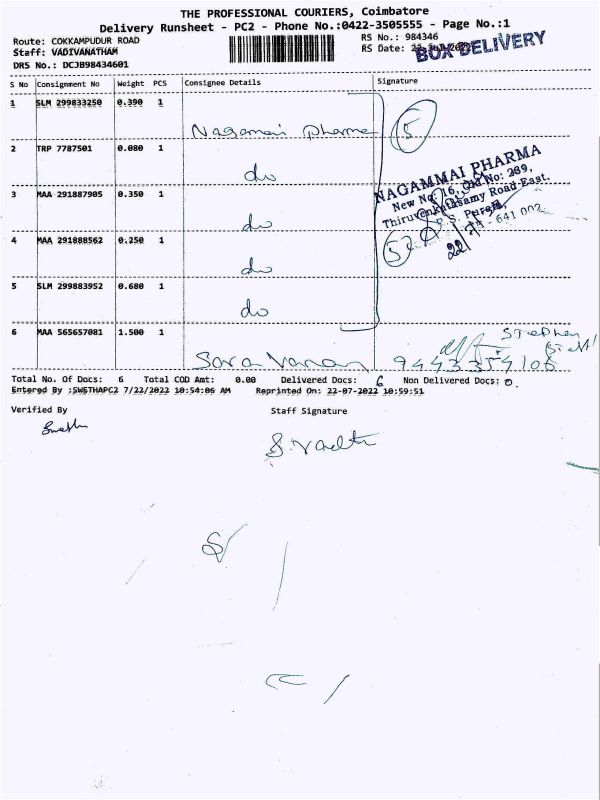 THE PROFESSIONAL COURIERS, Coimbatore
Delivery Runsheet - PC2 - Phone No.:0422-3505555 - Page No.:1
Route: COKKAMPUDUR ROAD
RS No.: 984346
Staff: VADIVANATHAM
RS Date:
BOX DELIVERY
DRS No.: DCJB98434601
S No Consignment No Weight PCS Consignee Details Signature
1 SLM 299833250 0.390 1
Nagamai pharma 5
2 TRP 7787501 0.080 1
do
NAGAMMAI PHARMA
New No: 16, Old No: 239,
Thiruvenkatasamy Road-East,
R.S. Puram,
641 002
3 MAA 291887905 0.350 1
do
4 MAA 291888562 0.250 1
do
5 SLM 299883952 0.680 1
do
6 MAA 565657081 1.500 1
Stephen
Saravanan 9443354106
Total No. Of Docs: 6 Total COD Amt: 0.00 Delivered Docs: 6 Non Delivered Docs: 0.
Entered By :SWETHAPC2 7/22/2022 10:54:06 AM Reprinted On: 22-07-2022 10:59:51
Verified By Staff Signature